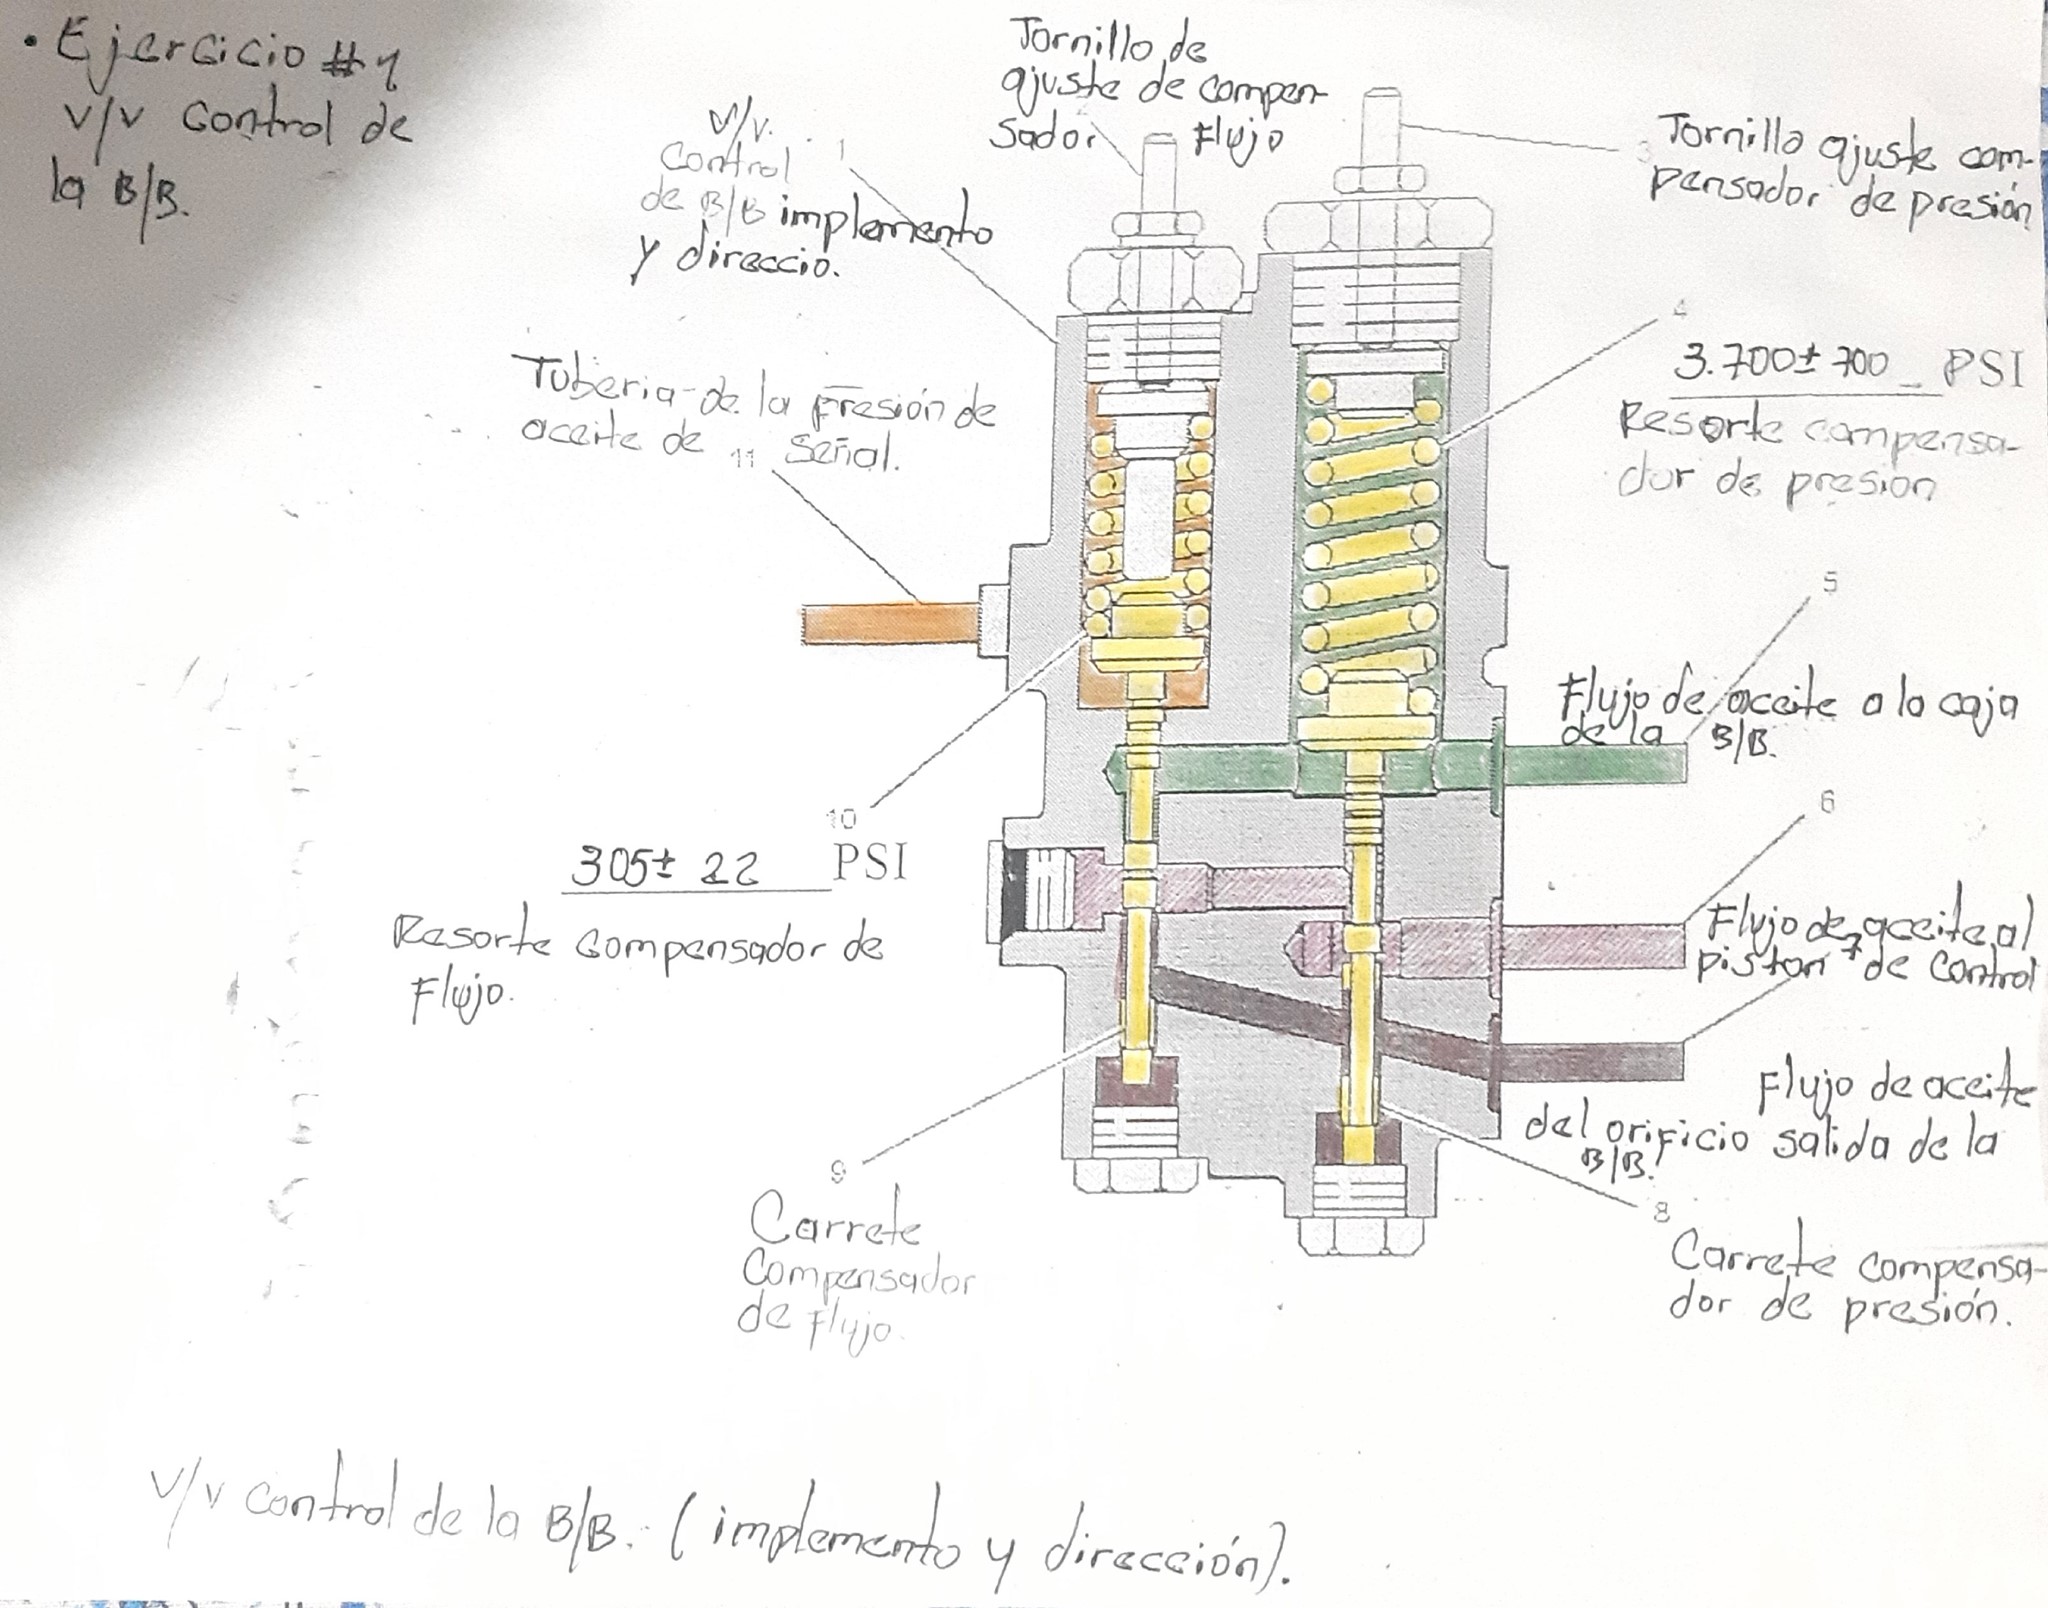 • Ejercicio #1
V/V Control de
la B/B.
Tornillo de
ajuste de compen-
sador 2 Flujo
V/V. 1
Control
de B/B implemento
y direccio.
3 Tornillo ajuste com-
pensador de presión
4
3.700± 700 PSI
Resorte compensa-
dor de presion
Tuberia de la presión de
aceite de 11 señal.
5
Flujo de aceite a la caja
de la B/B.
6
Flujo de aceite al
piston 7 de control
10
305± 22 PSI
Resorte compensador de
Flujo.
Flujo de aceite
del orificio salida de la
B/B.
9
Carrete
Compensador
de Flujo.
8
Carrete compensa-
dor de presión.
V/V control de la B/B. (implemento y dirección).